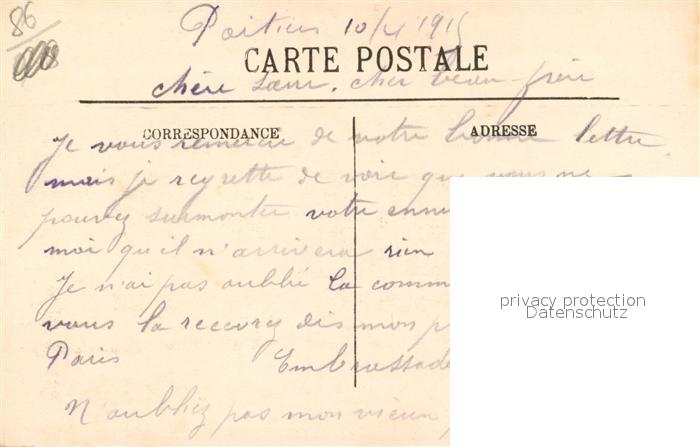 86
Poitiers 10/4 1915
CARTE POSTALE
chère Sœur, cher beau-frère
CORRESPONDANCE ADRESSE
Je vous remercie de votre bonne lettre
mais je regrette de voir que vous ne
pouvez surmonter votre ennui
moi qu'il n'arrivera rien
Je n'ai pas oublié la comm
vous la recevrez dès mon p
Paris Embrassade
N'oubliez pas mon vieux
privacy protection
Datenschutz